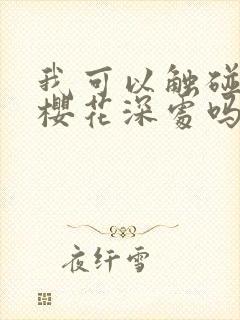 我可以触碰
樱花深处吗
夜纤雪